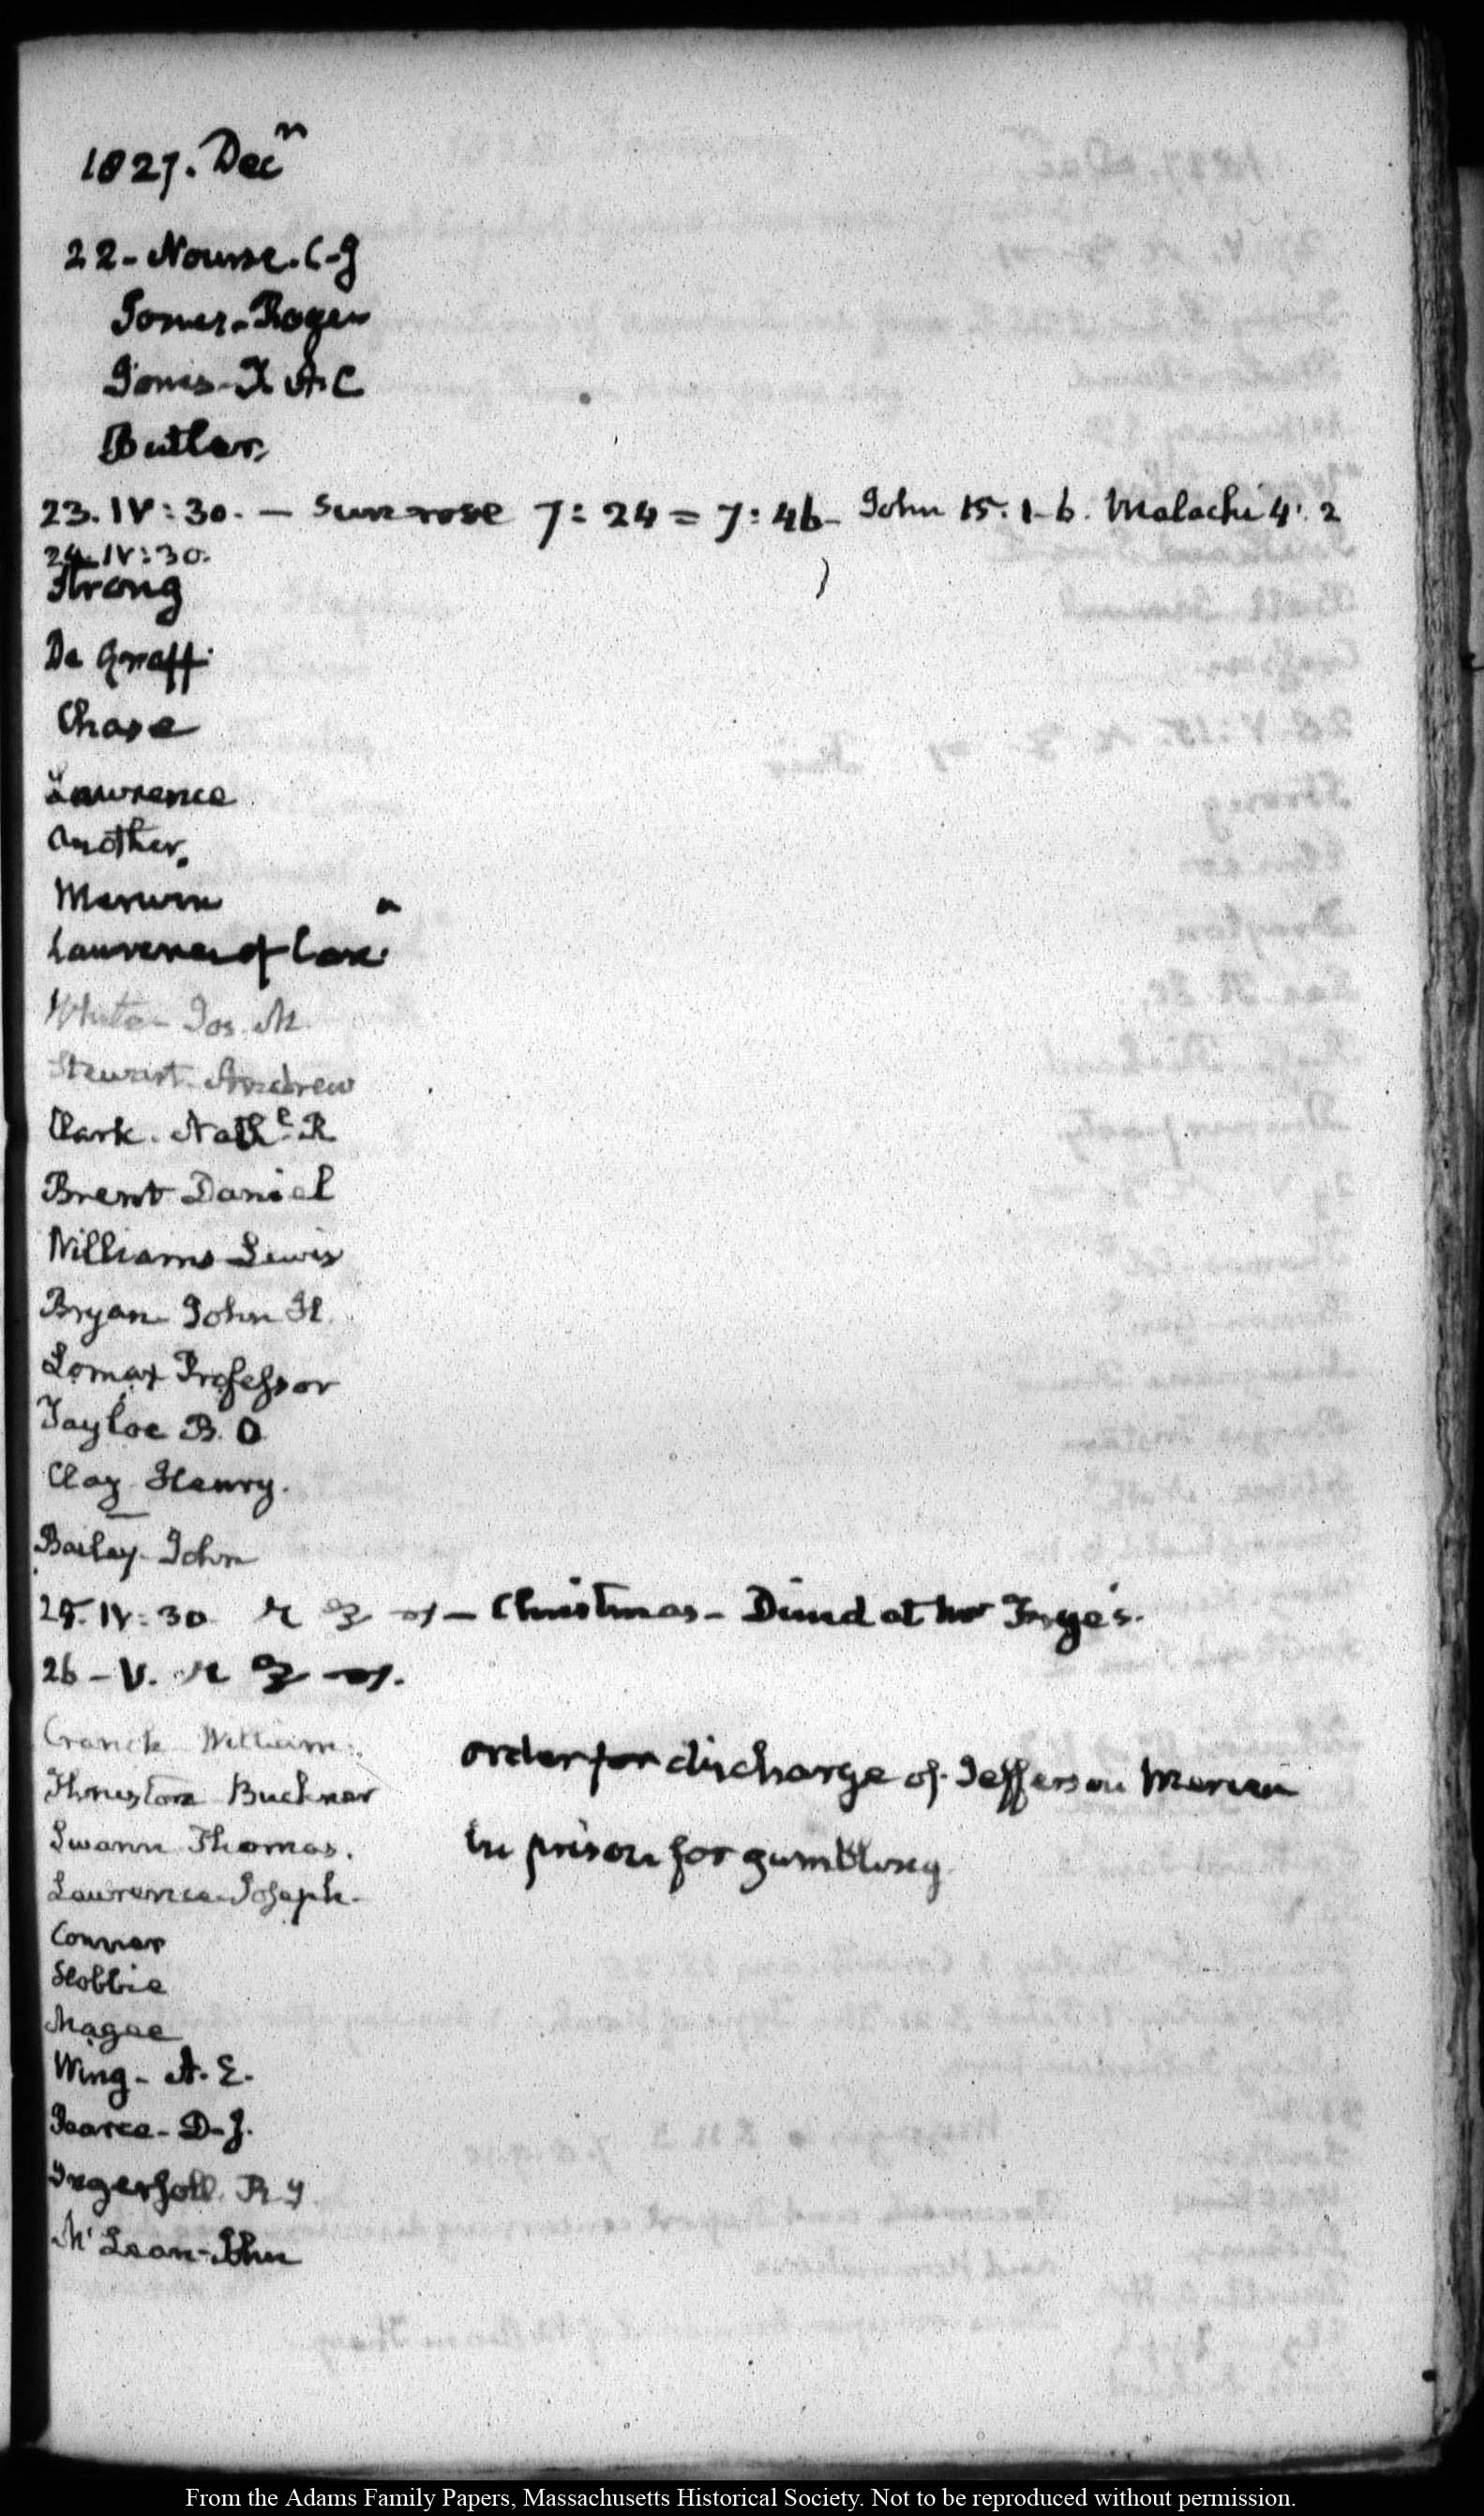 1827. Decr
22 - Nourse. C-J
Jones - Roger
Jones - T A. C
Butler.
23. IV: 30. — Sun rose 7: 24 = 7: 46 - John 15. 1-6. Malachi 4. 2
24. IV: 30.
Strong
De Graff.
Chase
Lawrence
Another.
Marvin
Lawrence of
White - Jos. M.
Stewart. Andrew
Clark. Nathl. R
Brent Daniel
Williams Lewis
Bryan John H.
Lomax Professor
Tayloe B. O
Clay Henry.
Bailey - John
25. IV: 30. — Christmas - Dined at Mr Frye's.
26 - V.
Cranch William.
Thruston Buckner
order for discharge of Jefferson
Swann Thomas.
in prison for gambling
Lawrence Joseph.
Conner
Hobbie
Magee
Wing - A. E.
Pearce - D - J.
Ingersoll. R. J
McLean - John
From the Adams Family Papers, Massachusetts Historical Society. Not to be reproduced without permission.